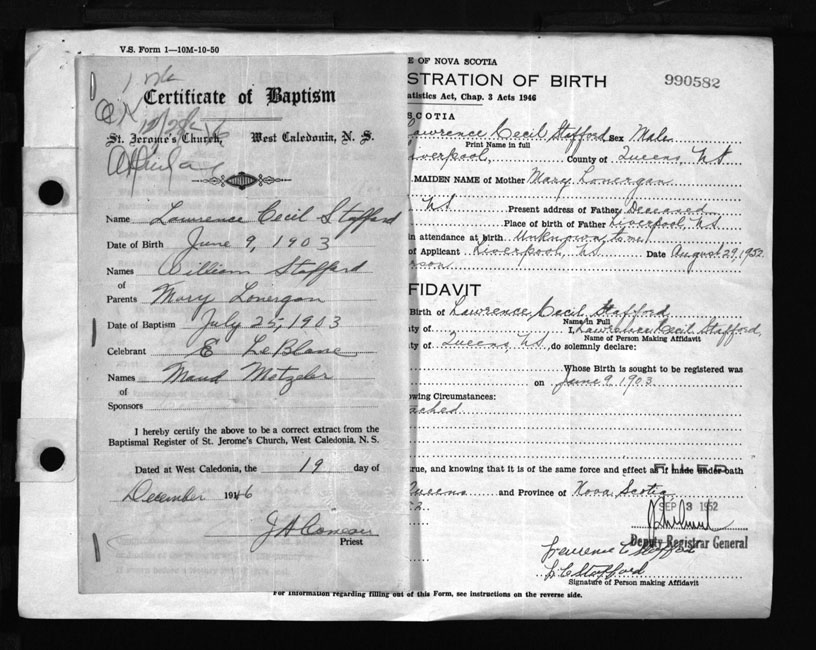 V.S. Form 1—10M-10-50
Certificate of Baptism
St. Jerome's Church, West Caledonia, N. S.
Name Lawrence Cecil Stafford
Date of Birth June 9, 1903
Names William Stafford
of
Parents Mary Lonergan
Date of Baptism July 25, 1903
Celebrant E LeBlanc
Names Maud Metzeler
of
Sponsors
I hereby certify the above to be a correct extract from the
Baptismal Register of St. Jerome's Church, West Caledonia, N. S.
Dated at West Caledonia, the 19 day of
December 1946
J A Comeau
Priest
E OF NOVA SCOTIA
STRATION OF BIRTH
990582
atistics Act, Chap. 3 Acts 1946
SCOTIA
Lawrence Cecil Stafford Sex Male
Print Name in full
Liverpool, County of Queens, N.S
MAIDEN NAME of Mother Mary Lonergan
N.S Present address of Father Deceased
Place of birth of Father Liverpool, N.S.
in attendance at birth Unknown to me
of Applicant Liverpool, N.S Date August 29, 1952
rson
FIDAVIT
Birth of Lawrence Cecil Stafford
Name in Full
ty of I, Lawrence Cecil Stafford
Name of Person Making Affidavit
ty of Queens, N.S, do solemnly declare:
Whose Birth is sought to be registered was
on June 9, 1903
owing Circumstances:
ached
true, and knowing that it is of the same force and effect as if made under oath
FILED
Queens and Province of Nova Scotia
2.
SEP 3 1952
Deputy Registrar General
Lawrence C Stafford
L C Stafford
Signature of Person making Affidavit
For information regarding filling out of this Form, see instructions on the reverse side.